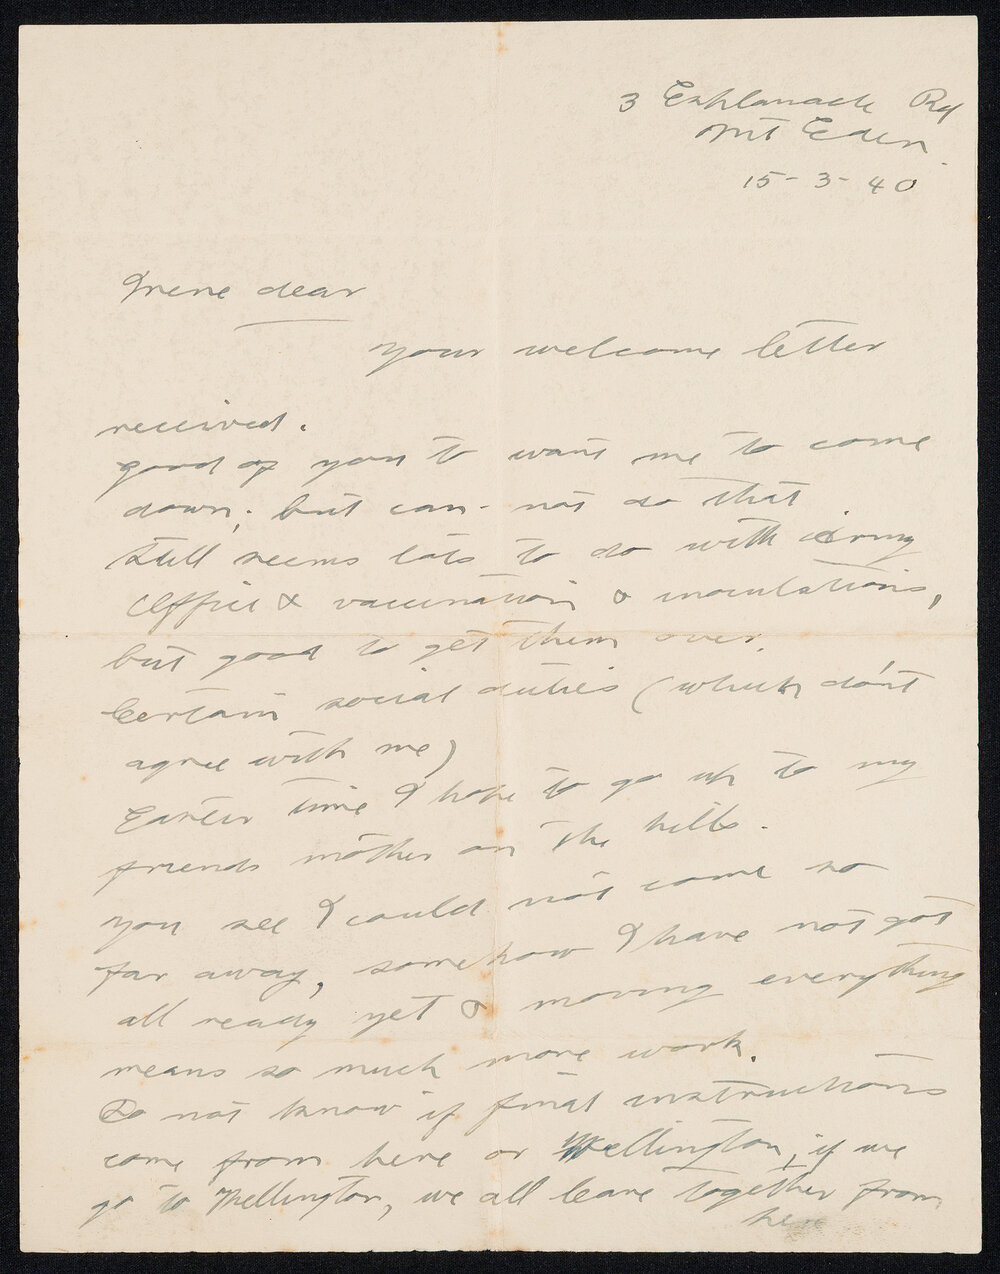 3 Esplanade Rd
Mt Eden.
15-3-40
Irene dear
your welcome letter
received.
good of you to want me to come
down, but can-not do that
Still seems lots to do with Army
Office & vaccination & inoculations,
but good to get them over.
Certain social duties (which don't
agree with me)
Easter time I hope to go up to my
friends mother on the hills.
you see I could not come so
far away, somehow I have not got
all ready yet & moving everything
means so much more work.
Do not know if final instructions
come from here or Wellington, if we
go to Wellington, we all leave together from
here